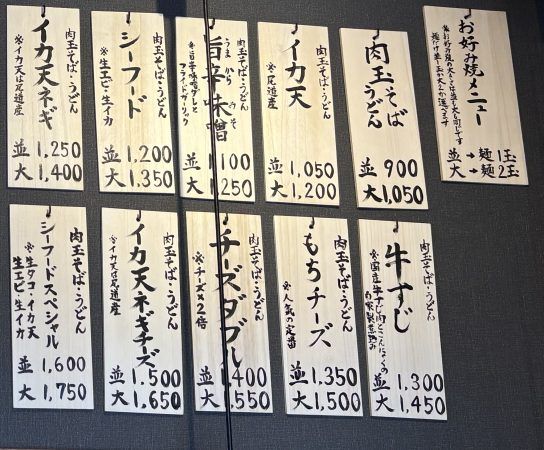 お好み焼メニュー
※お好み焼の大きさは並も大も同じです
麺だけ並(1玉)か大(2玉)か選べます
並→麺1玉
大→麺2玉
肉玉そば
うどん
並 900
大 1,050
肉玉そば・うどん
イカ天
※尾道産
並 1,050
大 1,200
肉玉そば・うどん
旨辛味噌
うまからみそ
※旨辛味噌ダレと
フライドガーリック
1,100
1,250
肉玉そば・うどん
シーフード
※生エビ・生イカ
並 1,200
大 1,350
肉玉そば・うどん
イカ天ネギ
※イカ天は尾道産
並 1,250
大 1,400
肉玉そば・うどん
牛すじ
※国産牛すじ肉とこんにゃくの
自家製煮込み
並 1,300
大 1,450
肉玉そば・うどん
もちチーズ
※人気の定番
並 1,350
大 1,500
肉玉そば・うどん
チーズダブル
※チーズ×2倍
並 1,400
大 1,550
肉玉そば・うどん
イカ天ネギチーズ
※イカ天は尾道産
並 1,500
大 1,650
肉玉そば・うどん
シーフードスペシャル
※生タコ・イカ天
生エビ・生イカ
並 1,600
大 1,750